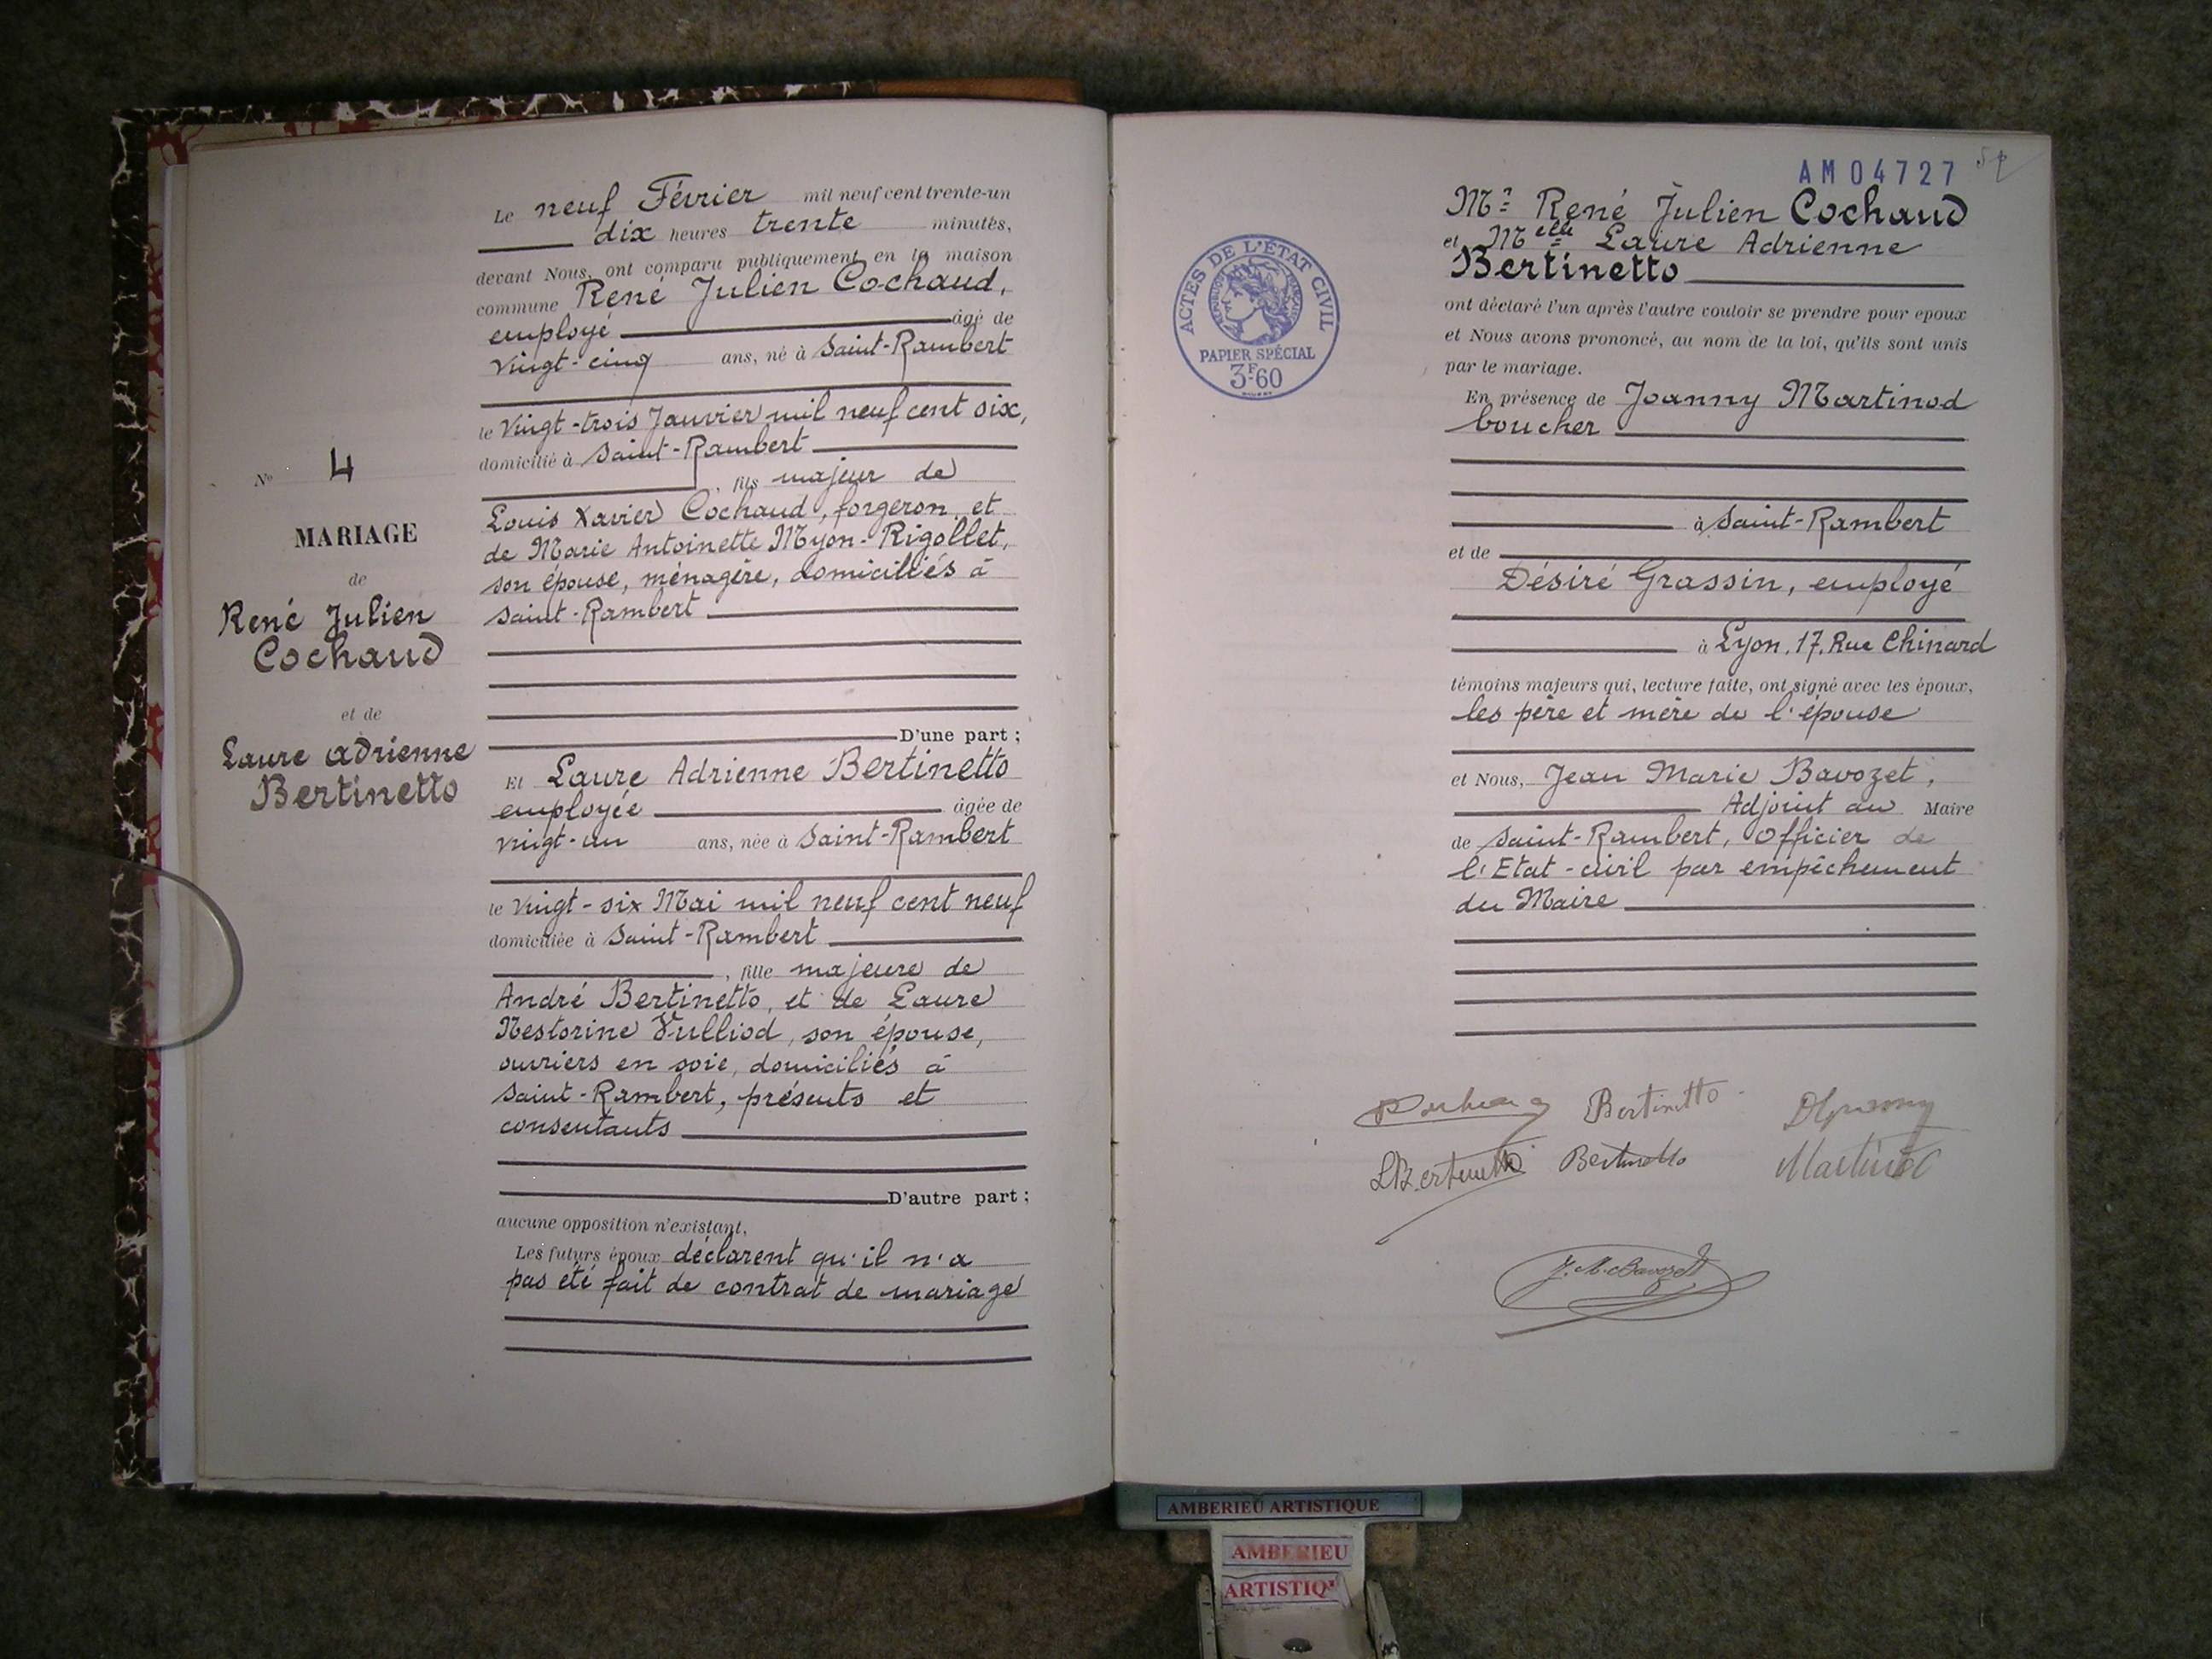 Nº 4
MARIAGE
de
René Julien
Cochaud
et de
Laure Adrienne
Bertinetto
Le neuf Février mil neuf cent trente-un
dix heures trente minutes,
devant Nous, ont comparu publiquement en la maison
commune René Julien Cochaud,
employé âgé de
vingt-cinq ans, né à Saint-Rambert
le vingt-trois Janvier mil neuf cent six,
domicilié à Saint-Rambert
, fils majeur de
Louis Xavier Cochaud, forgeron, et
de Marie Antoinette Myon-Rigollet,
son épouse, ménagère, domiciliés à
Saint-Rambert
D'une part ;
Et Laure Adrienne Bertinetto
employée âgée de
vingt-un ans, née à Saint-Rambert
le vingt-six Mai mil neuf cent neuf
domiciliée à Saint-Rambert
, fille majeure de
André Bertinetto, et de Laure
Nestorine Vulliod, son épouse,
ouvriers en soie, domiciliés à
Saint-Rambert, présents et
consentants
D'autre part ;
aucune opposition n'existant,
Les futurs époux déclarent qu'il n'a
pas été fait de contrat de mariage
AM04727
Mr René Julien Cochaud
et Melle Laure Adrienne
Bertinetto
ont déclaré l'un après l'autre vouloir se prendre pour epoux
et Nous avons prononcé, au nom de la loi, qu'ils sont unis
par le mariage.
En présence de Joanny Martinod
boucher
à Saint-Rambert
et de
Désiré Grassin, employé
à Lyon, 17, Rue Chinard
témoins majeurs qui, lecture faite, ont signé avec les époux,
les père et mère de l'épouse
et Nous, Jean Marie Bavozet,
Adjoint au Maire
de Saint-Rambert, Officier de
l'Etat-civil par empêchement
du Maire
Bertinetto
LBertinetto Bertinetto Martinod
J. M. Bavozet
ACTES DE L'ÉTAT CIVIL
RÉPUBLIQUE FRANÇAISE
PAPIER SPÉCIAL
3F60
AMBERIEU ARTISTIQUE
AMBERIEU
ARTISTIQ